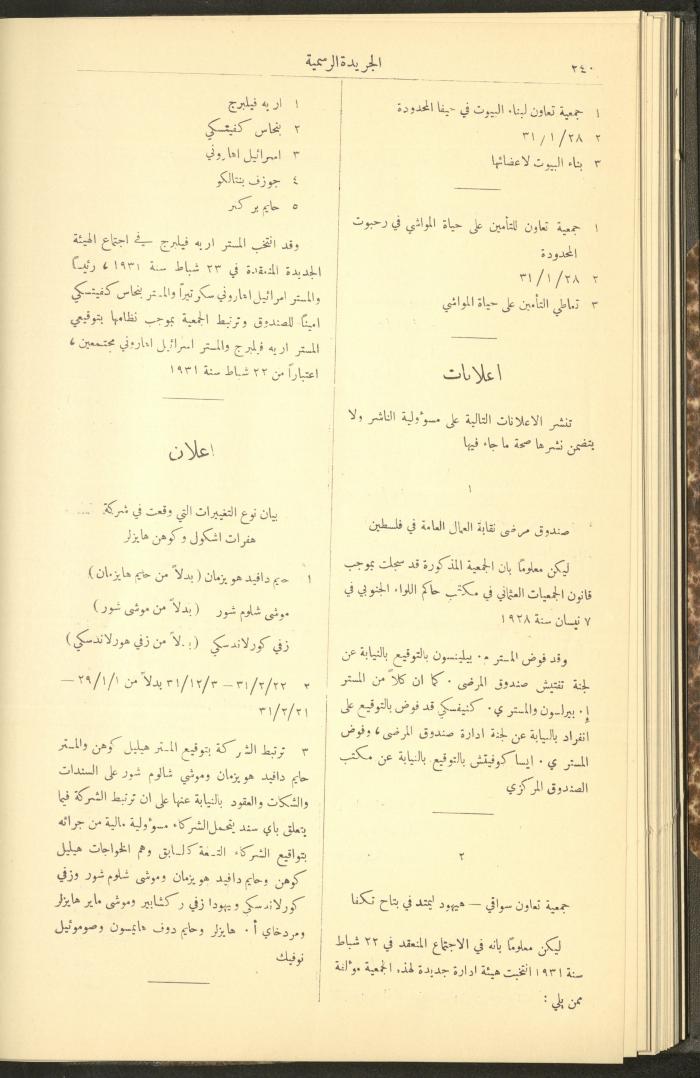 ٢٤٠
الجريدة الرسمية
١ جمعية تعاون لبناء البيوت في حيفا المحدودة
٢ ٣١/١/٢٨
٣ بناء البيوت لاعضائها
١ جمعية تعاون للتأمين على حياة المواشي في رحبوت
المحدودة
٢ ٣١/١/٢٨
٣ تعاطي التأمين على حياة المواشي
اعلانات
تنشر الاعلانات التالية على مسوؤلية الناشر ولا
يتضمن نشرها صحة ما جاء فيها
١
صندوق مرضى نقابة العمال العامة في فلسطين
ليكن معلوماً بان الجمعية المذكورة قد سجلت بموجب
قانون الجمعيات العثماني في مكتب حاكم اللواء الجنوبي في
٧ نيسان سنة ١٩٢٨
وقد فوض المستر م٠ بيلينسون بالتوقيع بالنيابة عن
لجنة تفتيش صندوق المرضى ٠ كما ان كلاً من المستر
إ٠ بيرلسون والمستر ي٠ كنيفسكي قد فوض بالتوقيع على
انفراد بالنيابة عن لجنة ادارة صندوق المرضى ، وفوض
المستر ي٠ ايسا كوفيتش بالتوقيع بالنيابة عن مكتب
الصندوق المركزي
٢
جمعية تعاون سواقي — هيهود ليمتد في بتاح تكفا
ليكن معلوماً بانه في الاجتماع المنعقد في ٢٢ شباط
سنة ١٩٣١ انتخبت هيئة ادارة جديدة لهذه الجمعية موءلفة
ممن يلي :
١ اريه فيلبرج
٢ بنحاس كفيتسكي
٣ اسرائيل اهاروني
٤ جوزف بنتالكو
٥ حايم بركنر
وقد انتخب المستر اريه فيلبرج في اجتماع الهيئة
الجديدة المنعقدة في ٢٣ شباط سنة ١٩٣١ ، رئيساً
والمستر اسرائيل اهاروني سكرتيراً والمستر بنحاس كفيتسكي
اميناً للصندوق وترتبط الجمعية بموجب نظامها بتوقيعي
المستر اريه فيلبرج والمستر اسرائيل اهاروني مجتمعين ،
اعتباراً من ٢٢ شباط سنة ١٩٣١
اعلان
بيان نوع التغييرات التي وقعت في شركة
هفرات اشكول وكوهن هايزلر
١ حيم دافيد هويزمان (بدلاً من حايم هايزمان)
موشى شلوم شور (بدلاً من موشى شور)
زفي كورلاندسكي (بدلاً من زفي هورلاندسكي)
٢ ٣١/٢/٢٢ — ٣١/١٢/٣ بدلاً من ٢٩/١/١ —
٣١/٢/٢١
٣ ترتبط الشركة بتوقيع المستر هيليل كوهن والمستر
حايم دافيد هويزمان وموشي شالوم شور على السندات
والشكات والعقود بالنيابة عنها على ان ترتبط الشركة فيما
يتعلق باي سند يتحمل الشركاء مسوؤلية مالية من جرائه
بتواقيع الشركاء التسعة كالسابق وهم الخواجات هيليل
كوهن وحايم دافيد هويزمان وموشى شلوم شور وزفي
كورلاندسكي ويهودا زفي ركشابير وموشى ماير هايزلر
ومردخاي أ٠ هايزلر وحايم دوف هايمسون وصموئيل
نوفيك